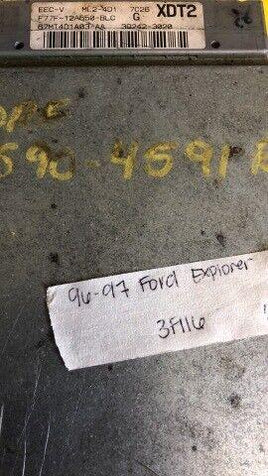 EEC-V ML2-401 7C26 XDT2
F77F-12A650-BLC G
87MT401A03 AA 30242-3020
590-4591R
96-97 Ford Explorer
3F116